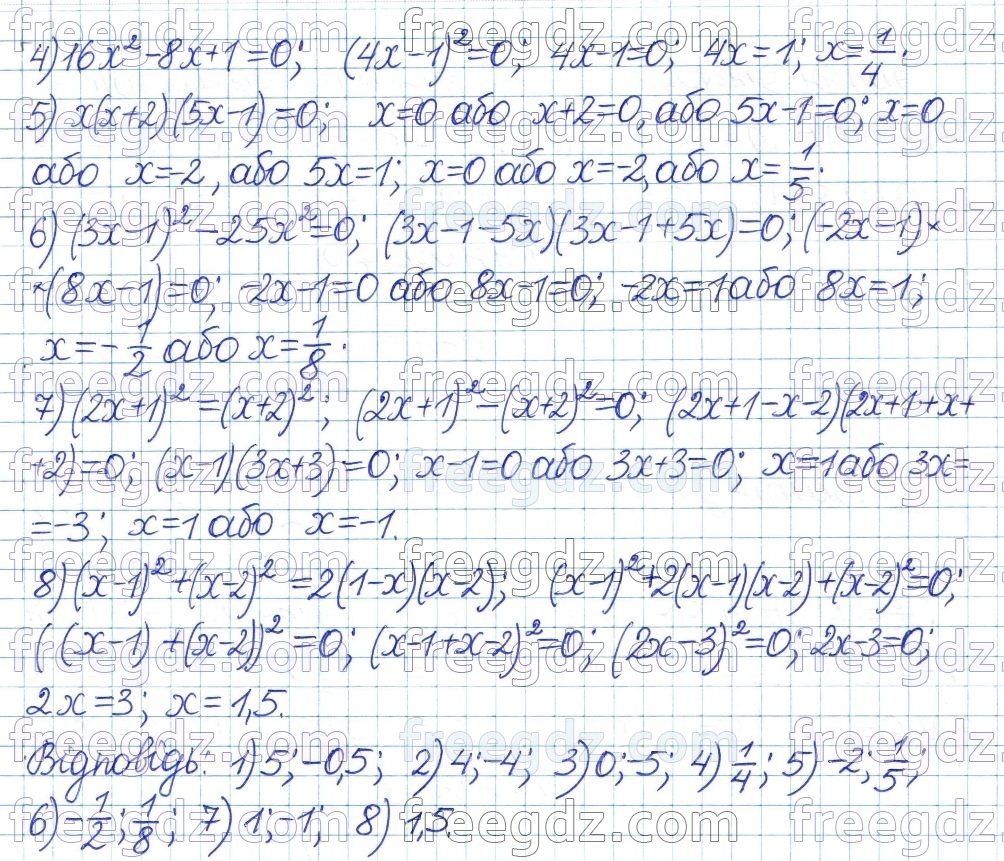 4) 16x²-8x+1=0; (4x-1)²=0; 4x-1=0; 4x=1; x=1/4.
5) x(x+2)(5x-1)=0; x=0 або x+2=0, або 5x-1=0; x=0
або x=-2, або 5x=1; x=0 або x=-2, або x=1/5.
6) (3x-1)²-25x²=0; (3x-1-5x)(3x-1+5x)=0; (-2x-1)×
×(8x-1)=0; -2x-1=0 або 8x-1=0; -2x=1 або 8x=1;
x=-1/2 або x=1/8.
7) (2x+1)²=(x+2)²; (2x+1)²-(x+2)²=0; (2x+1-x-2)(2x+1+x+
+2)=0; (x-1)(3x+3)=0; x-1=0 або 3x+3=0; x=1 або 3x=
=-3; x=1 або x=-1.
8) (x-1)²+(x-2)²=2(1-x)(x-2); (x-1)²+2(x-1)(x-2)+(x-2)²=0;
((x-1)+(x-2))²=0; (x-1+x-2)²=0; (2x-3)²=0; 2x-3=0;
2x=3; x=1,5.
Відповідь: 1) 5; -0,5; 2) 4; -4; 3) 0; -5; 4) 1/4; 5) -2; 1/5;
6) -1/2; 1/8; 7) 1; -1; 8) 1,5.